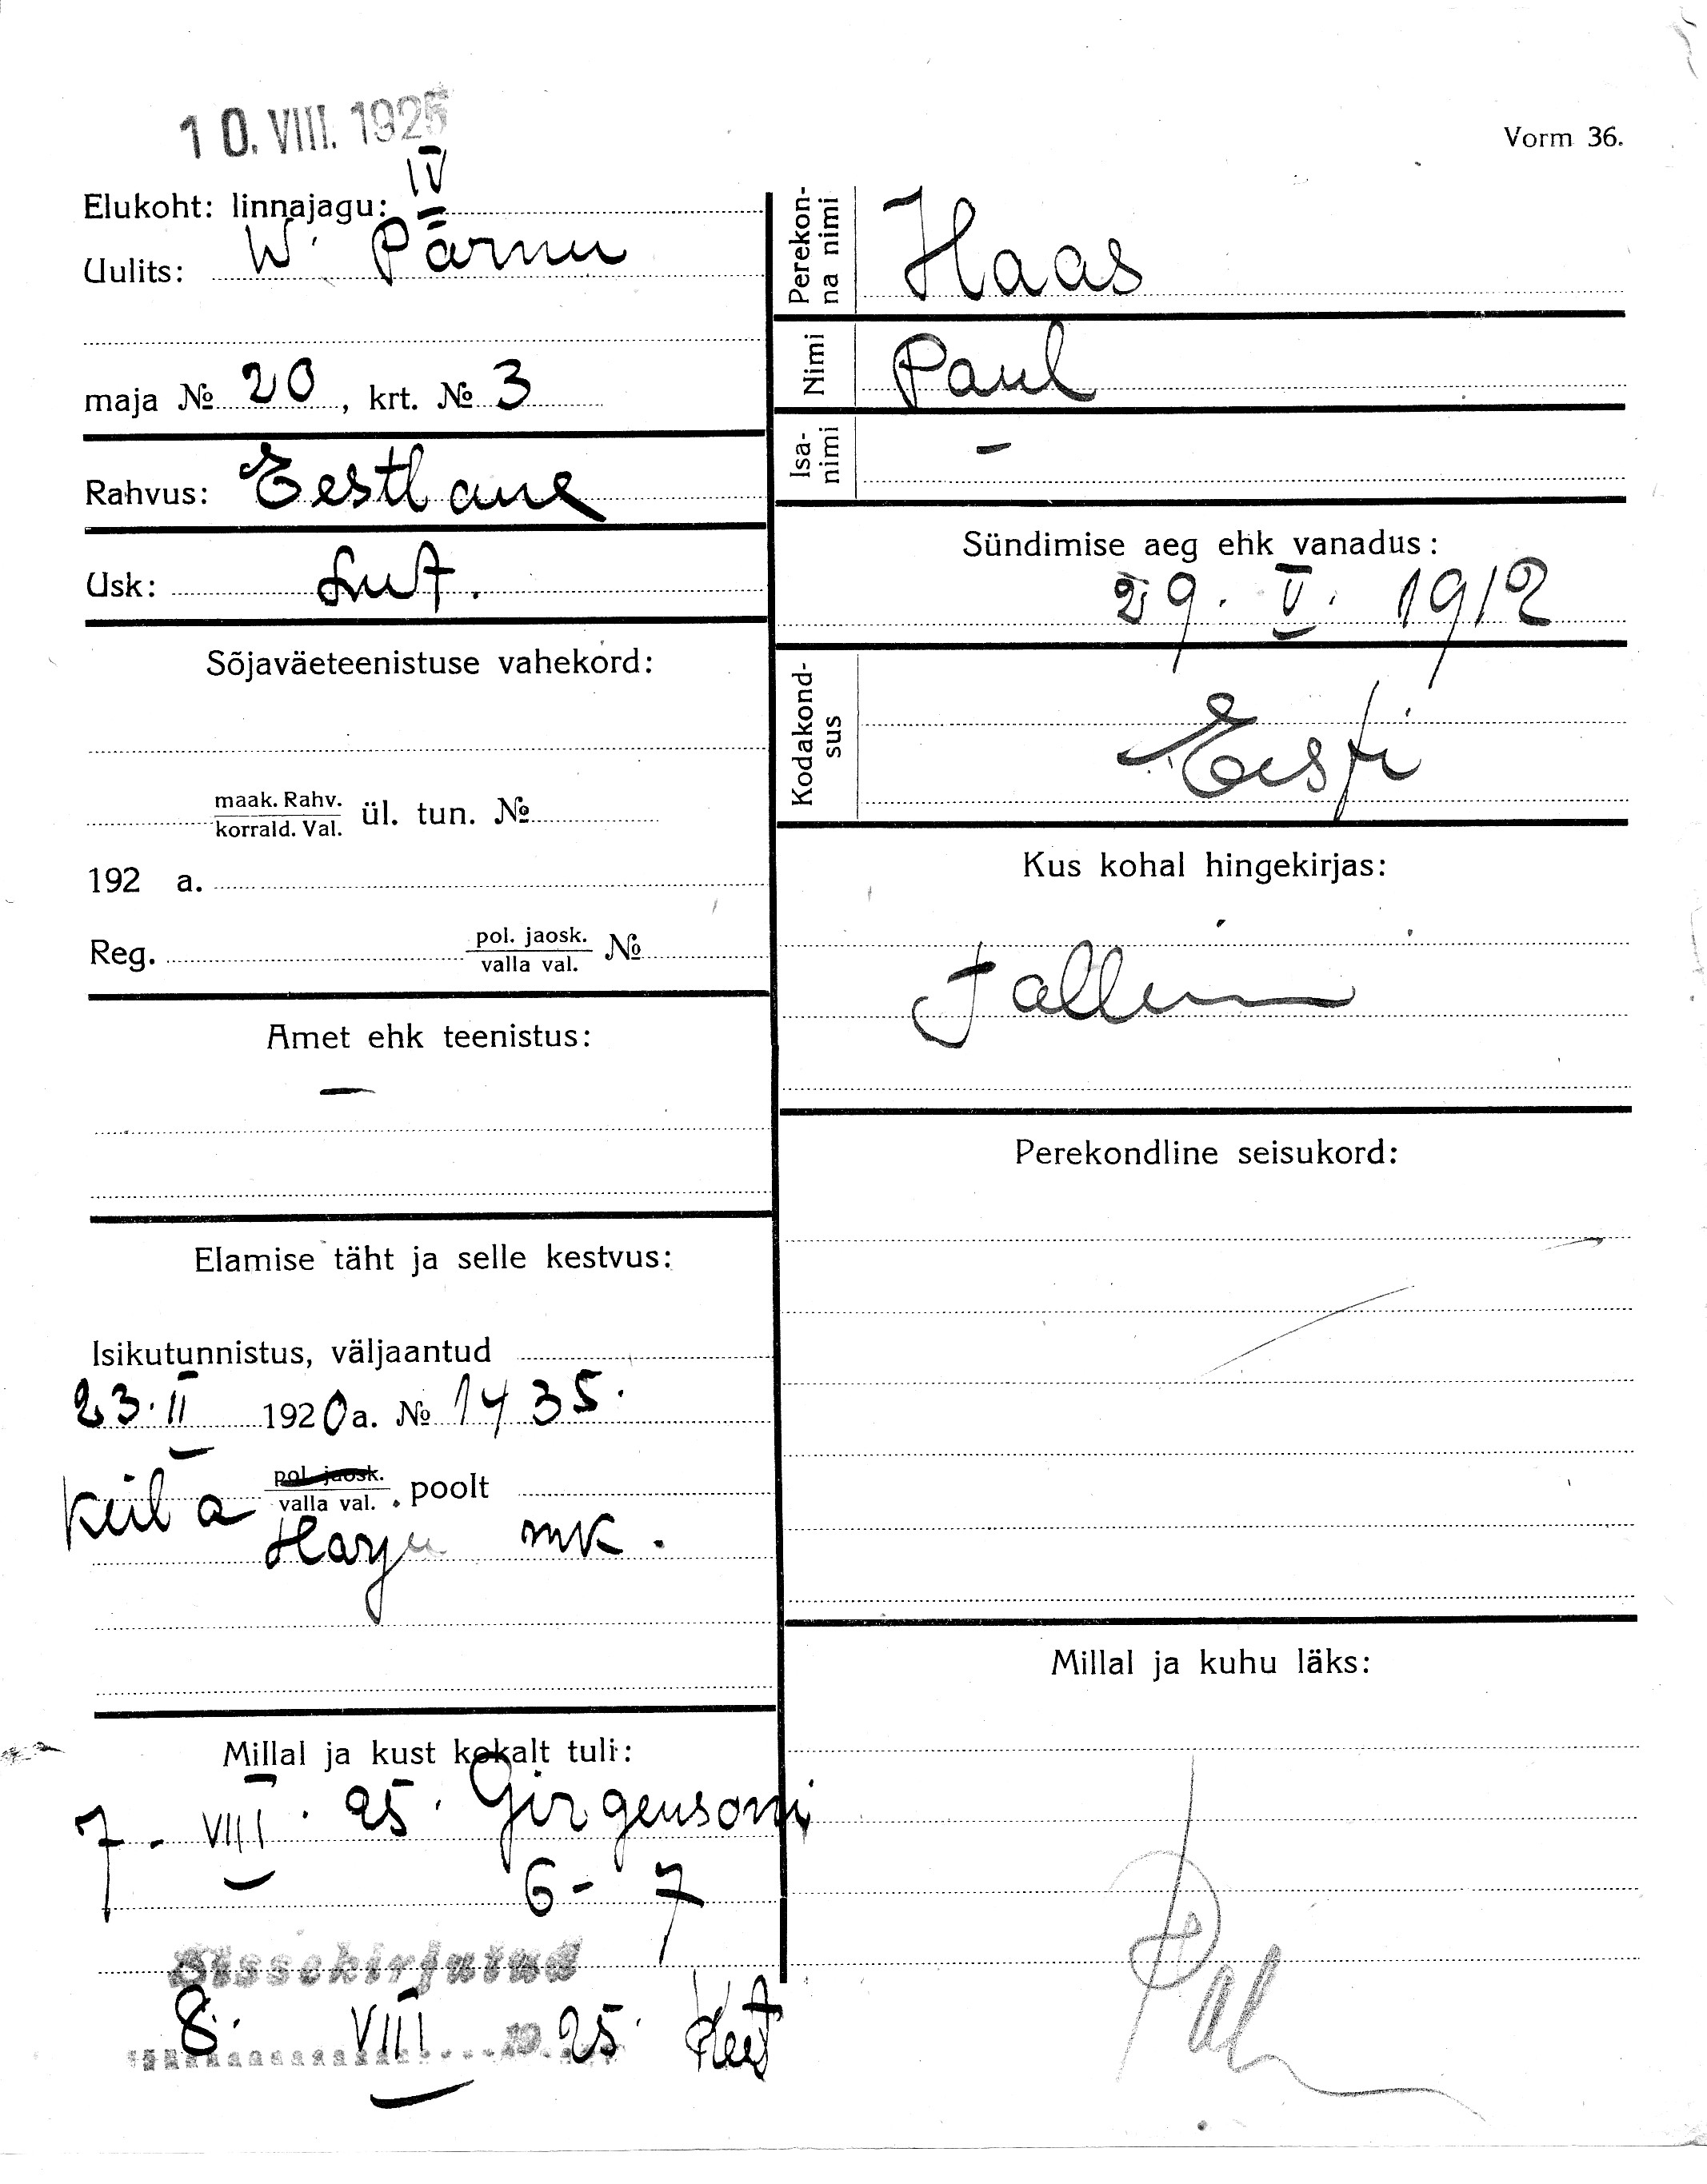 10. VIII. 1925
Vorm 36.
Elukoht: linnajagu: IV
Uulits: W. Pärnu
maja № 20, krt. № 3
Rahvus: Eestlane
Usk: Lut.
Sõjaväeteenistuse vahekord:
maak. Rahv.
korrald. Val. ül. tun. №
192 a.
Reg. pol. jaosk.
valla val. №
Amet ehk teenistus:
—
Elamise täht ja selle kestvus:
Isikutunnistus, väljaantud
23. II 1920 a. № 1435.
Keila pol. jaosk.
valla val. poolt
Harju mk.
Millal ja kust kohalt tuli:
7. VIII. 25. Girgensoni
6 - 7
Sissekirjutud
8. VIII 1925.
Perekon-
na nimi Haas
Nimi Paul
Isa-
nimi -
Sündimise aeg ehk vanadus:
29. V. 1912
Kodakond-
sus Eesti
Kus kohal hingekirjas:
Tallinn
Perekondline seisukord:
Millal ja kuhu läks: